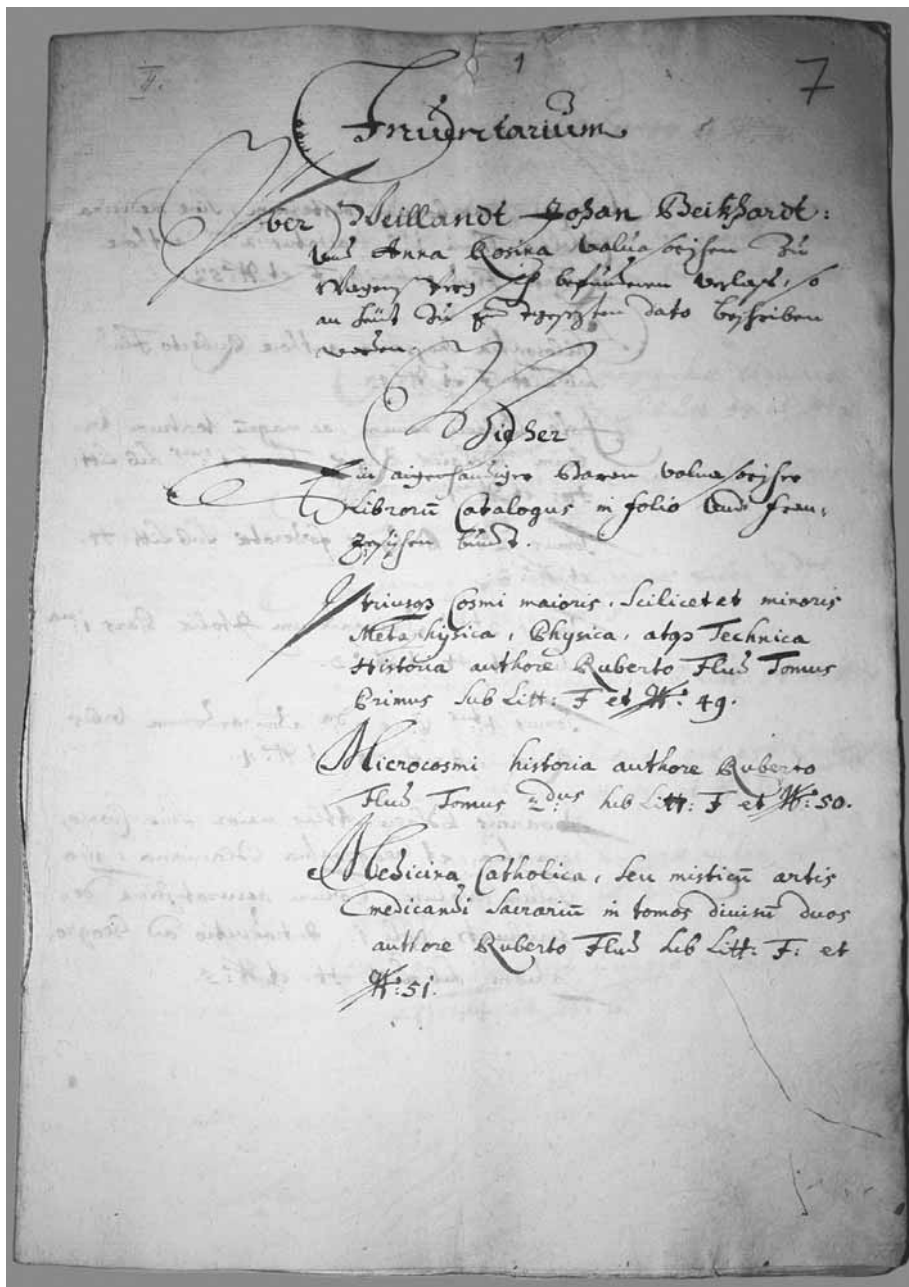 1
7
Inventarium
Über Weillandt Johan Weikhardt:
und Anna Rosina Valvasorischen zu
Wagensperg befundenen verlass, so
an heut zu dato beschriben
worden
Bücher
Ein aigenhandiger Baron Valvasorischer
Librorũ Catalogus in folio und Fran,
zesischen bundt.
Utriusqꝫ Cosmi maioris, Scilicet et minoris
Metaphysica, Physica, atqꝫ Technica
Historia authore Ruberto Flud Tomus
Primus sub Litt: F et No: 49.
Microcosmi historia authore Ruberto
Flud Tomus 2dus sub Litt: F et No: 50.
Medicina Catholica, seu misticũ artis
medicandi Sacrariũ in tomos divisũ duos
authore Ruberto Flud sub Litt: F: et
No: 51.